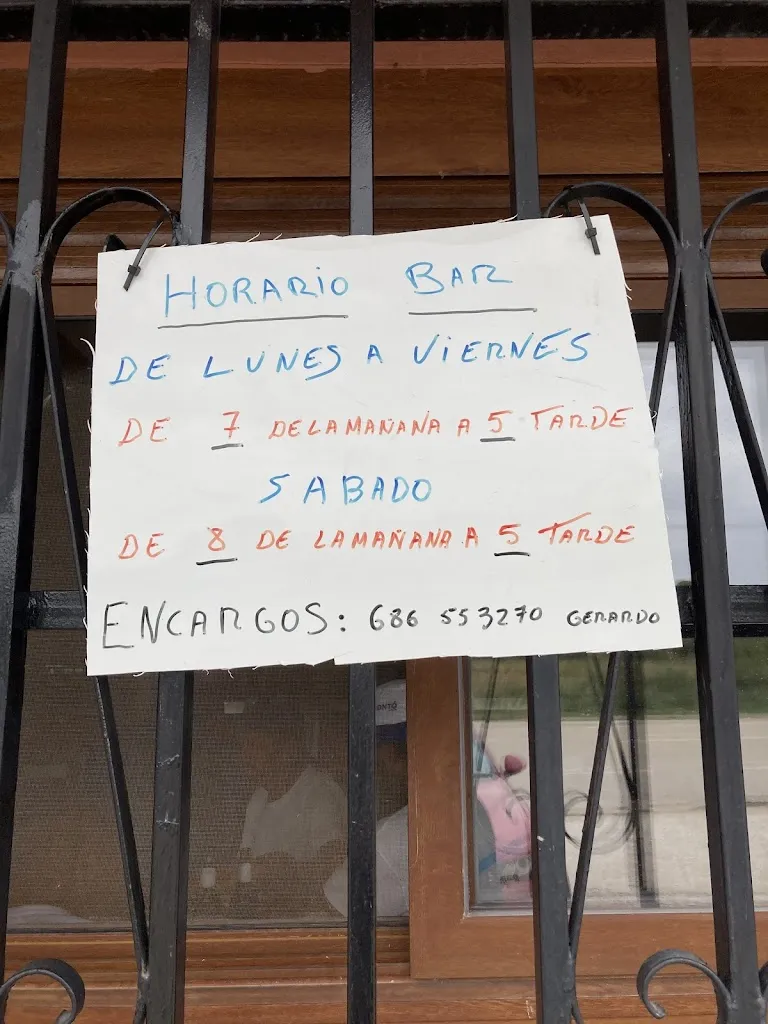 HORARIO BAR
DE LUNES A VIERNES
DE 7 DE LA MAÑANA A 5 TARDE
SABADO
DE 8 DE LA MAÑANA A 5 TARDE
ENCARGOS: 686 553270 GERARDO